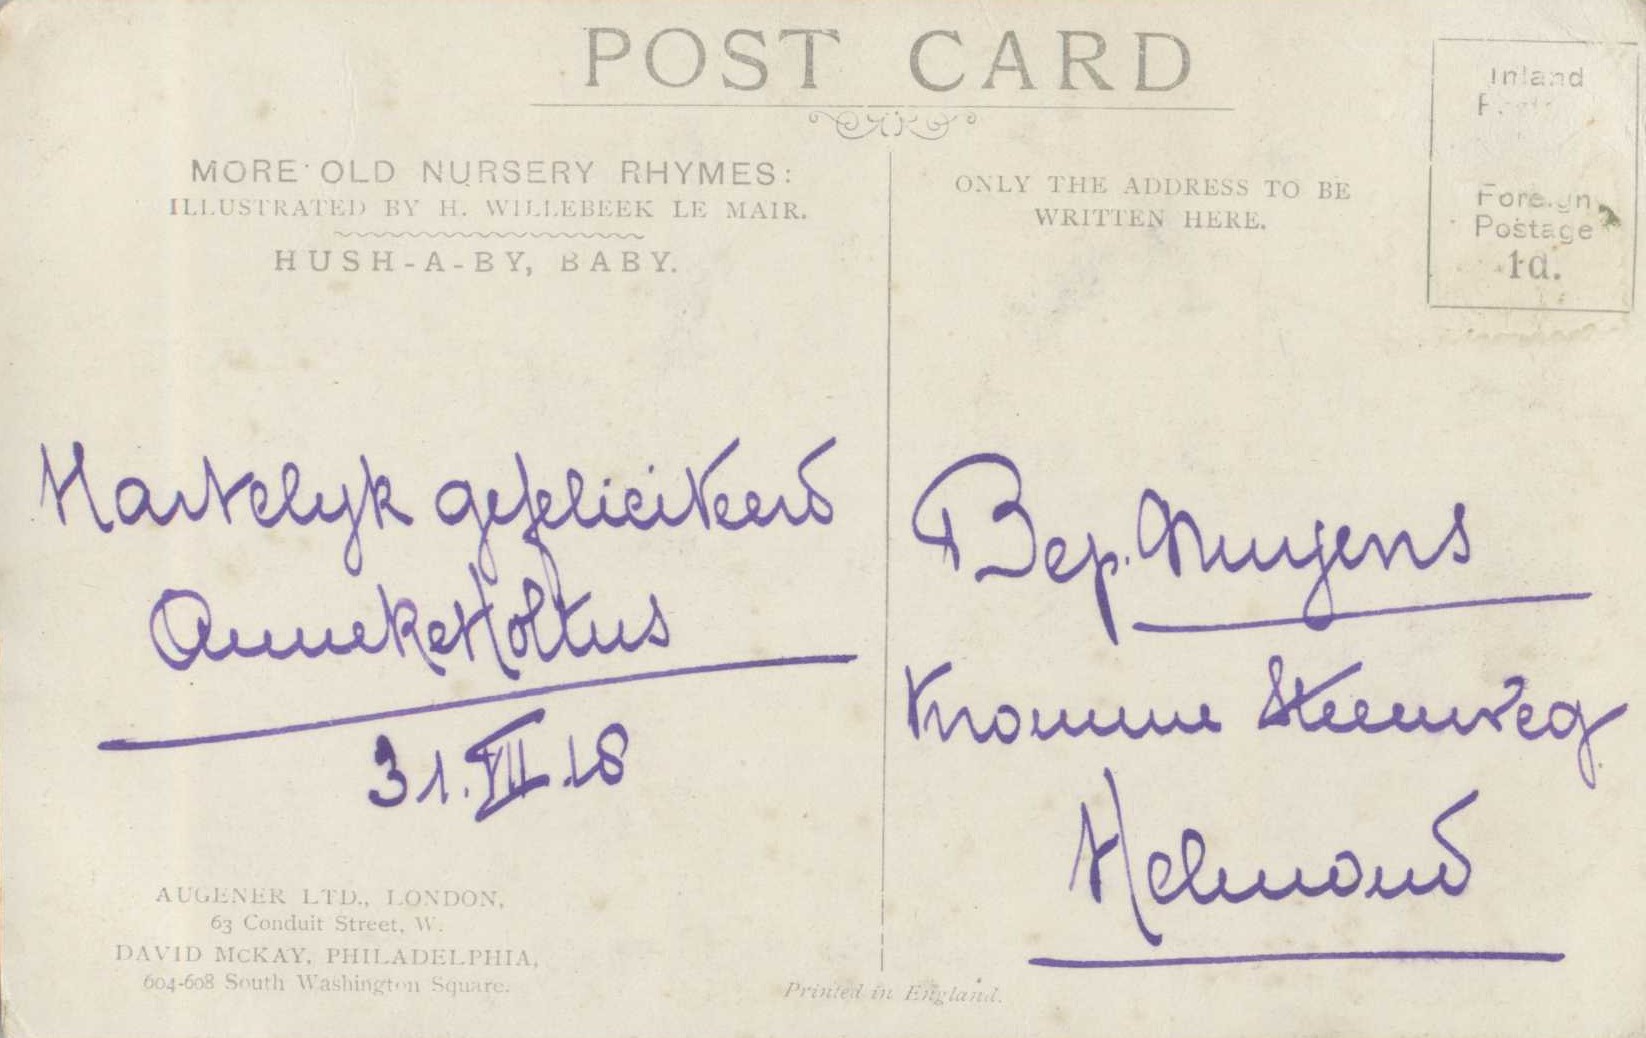 POST CARD
MORE OLD NURSERY RHYMES:
ILLUSTRATED BY H. WILLEBEEK LE MAIR.
HUSH-A-BY, BABY.
ONLY THE ADDRESS TO BE
WRITTEN HERE.
Inland
Foreign
Postage
1d.
Hartelyk gefeliciteerd
Anneke Holtus
31.VII.18
Bep. Nuyens
Kromme Steenweg
Helmond
AUGENER LTD., LONDON,
63 Conduit Street, W.
DAVID McKAY, PHILADELPHIA,
604-608 South Washington Square.
Printed in England.